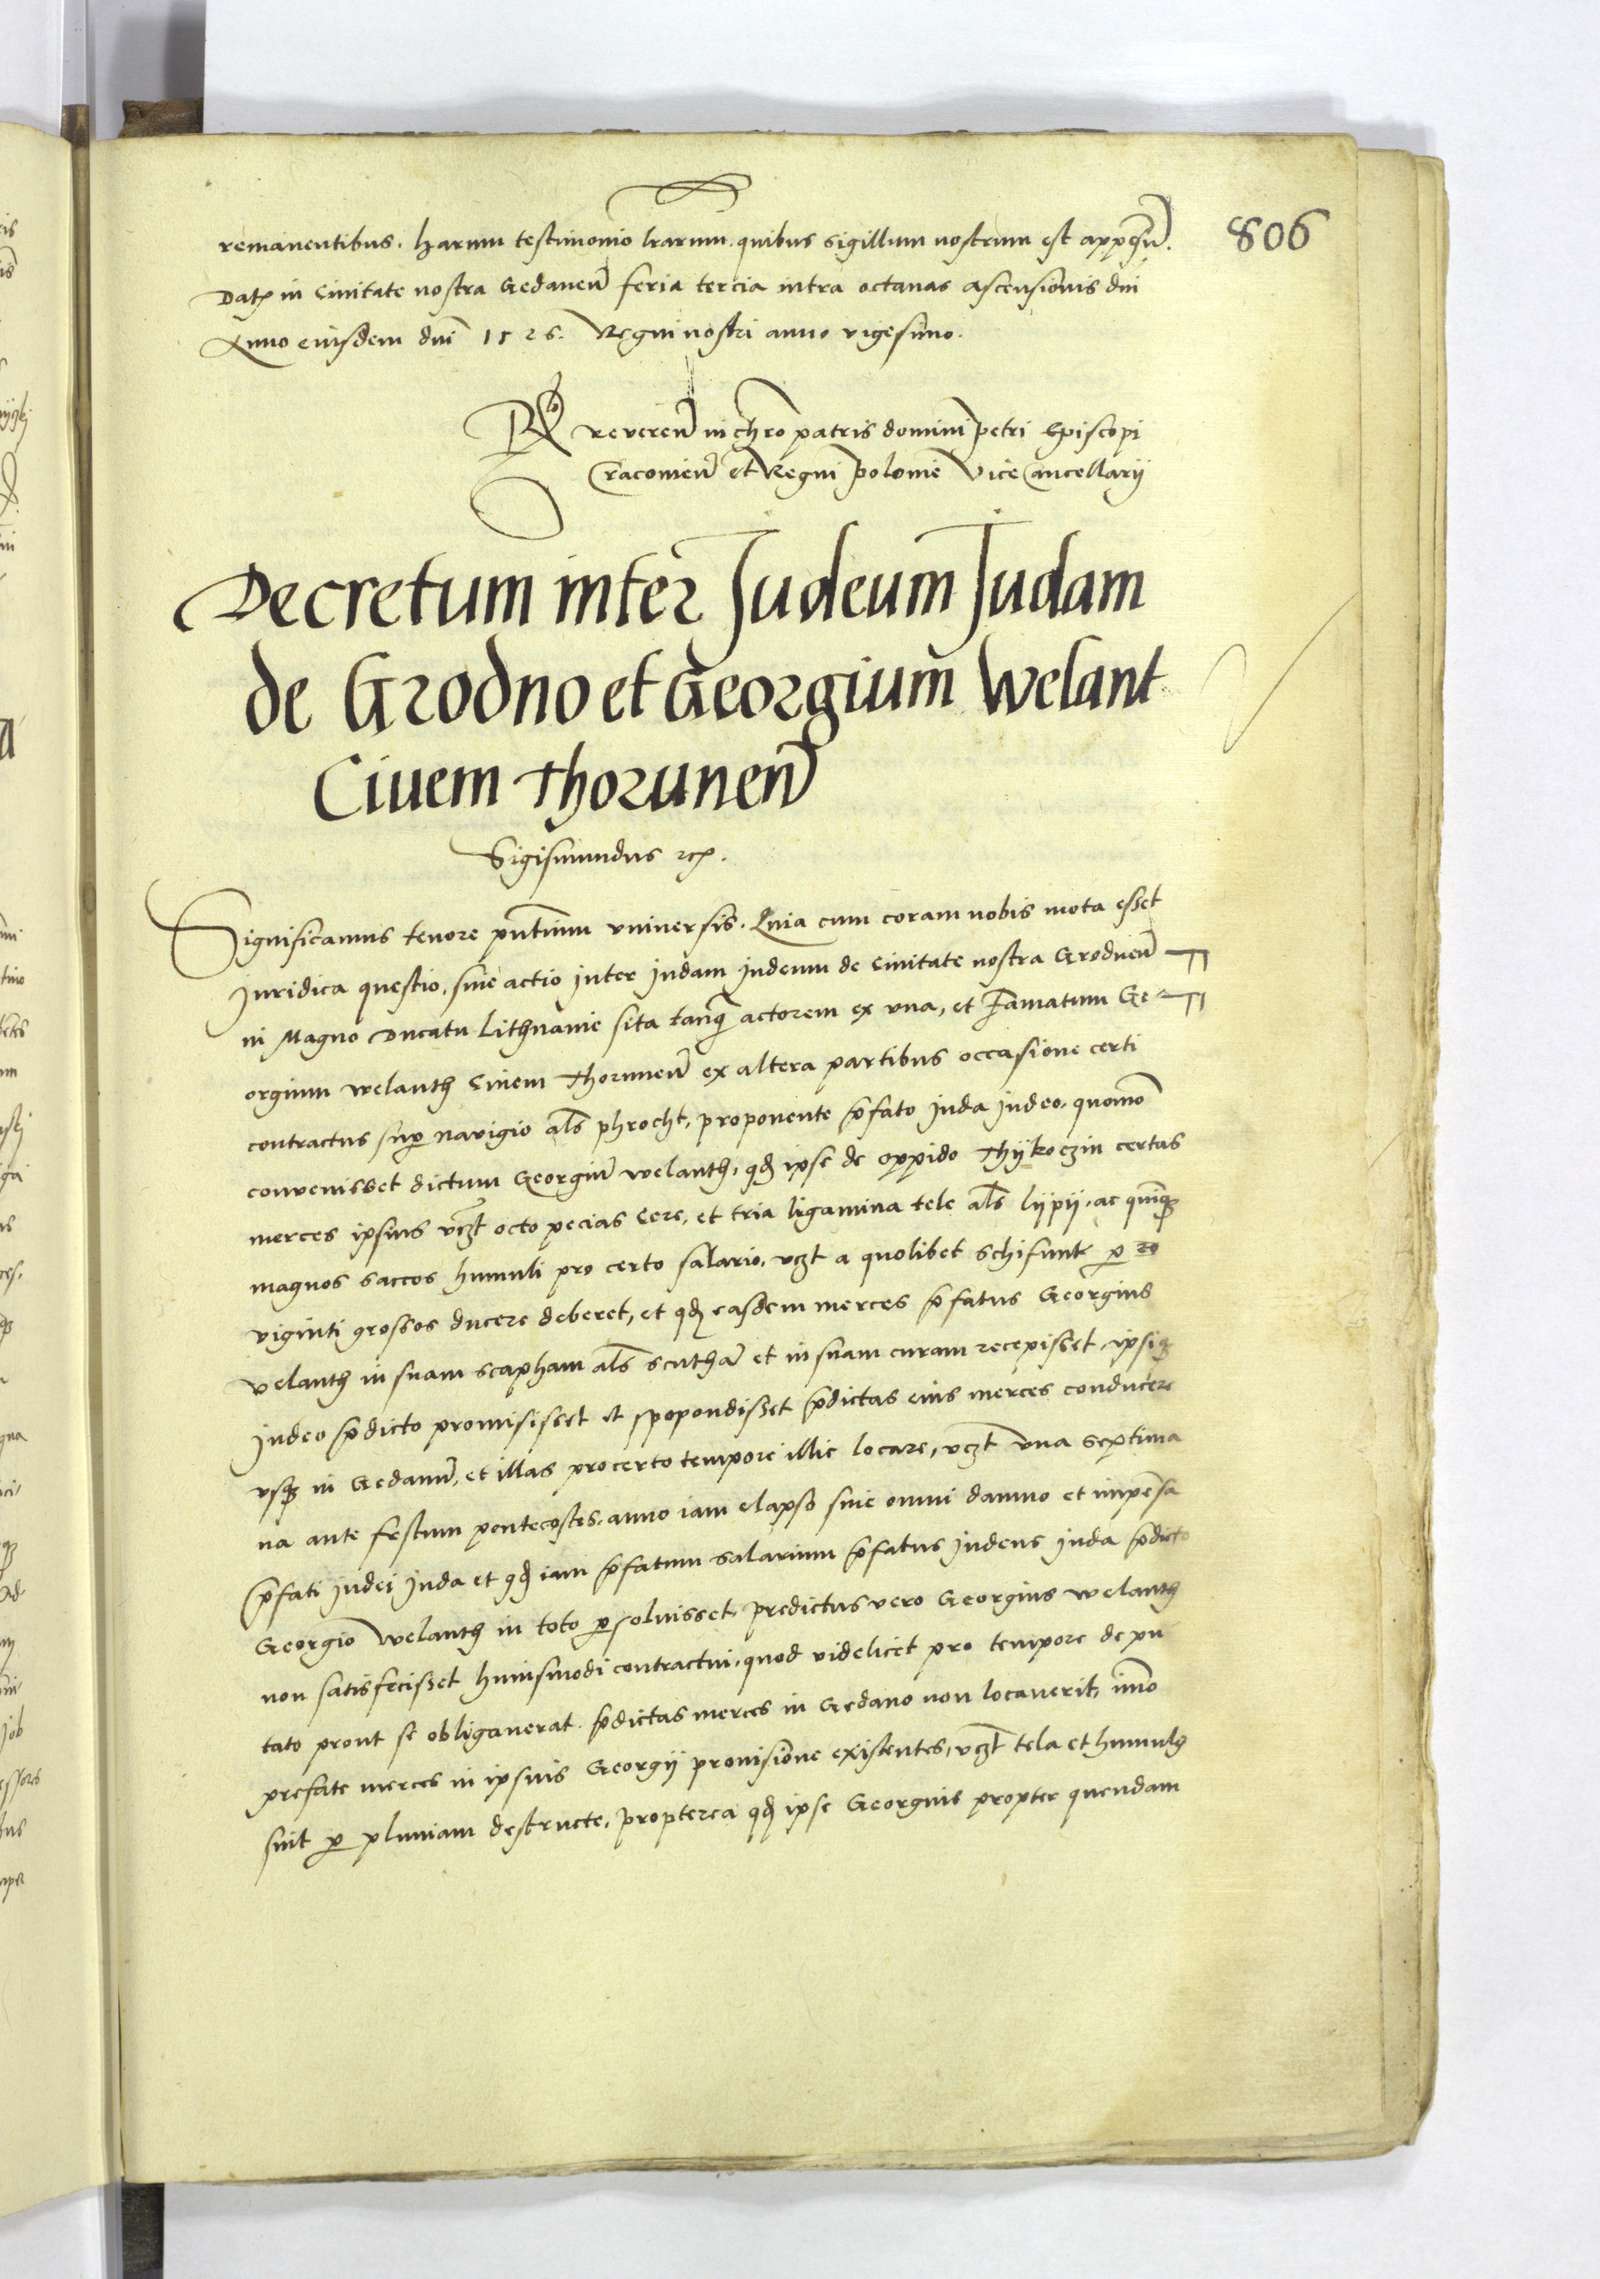 806
remanentibus. Harum testimonio lrarum. quibus sigillum nostrum est appensu͂.
Dat in Ciuitate nostra Gedanen͂ feria tercia intra octauas Ascensionis dni
Anno eiusdem dni 1526. Regni nostri anno vigesimo.
Rlo reveren͂ in chro patris domini Petri Episcopi
Cracouien͂ et Regni Polonie Vice Cancellarij
Decretum inter Judeum Judam
de Grodno et Georgium Welant
Ciuem Thorunen͂
Sigismundus rex.
Significamus tenore pntium vniuersis. Quia cum coram nobis mota esset
Juridica questio, siue actio inter Judam Judeum de Ciuitate nostra Grodnen͂
in Magno Ducatu Lithuanie sita tanq̃ actorem ex vna, et Famatum Ge-
orgium welanth Ciuem Thorunen͂ ex altera partibus occasione certi
contractus sup nauigio als phrocht, proponente p̃fato Juda Judeo. quomo͂
convenisset dictum Georgiu͂ welanth, qd ipse de oppido Thykoczin certas
merces ipsius vczt octo pecias Cere, et tria ligamina tele als lijpij. ac quinq̃
magnos saccos humuli pro certo salario, vczt a quolibet schifunt p 20
viginti grossos ducere deberet, et qd easdem merces p̃fatus Georgius
velanth in suam scapham als scutha͂ et in suam curam recepisset, ipsiq̃
Judeo p̃dicto promisisset et spopondisset p̃dictas eius merces conducere
vsq̃ in Gedanu͂, et illas pro certo tempore illic locare, vczt vna septima
na ante festum pentecostes. anno iam elapso sine omni damno et impensa
p̃fati Judei Juda et qd iam p̃fatum salarium p̃fatus Judeus Juda p̃dicto
Georgio Welanth in toto psoluisset, predictus vero Georgius welanth
non satisfecisset huiusmodi contractui. quod videlicet pro tempore depu
tato prout se obligauerat. p̃dictas merces in Gedano non locauerit, imo͂
prefate merces in ipsius Georgij prouisione existentes, vczt tela et humulus
sint p pluuiam destructe, propterea qd ipse Georgius propter quendam